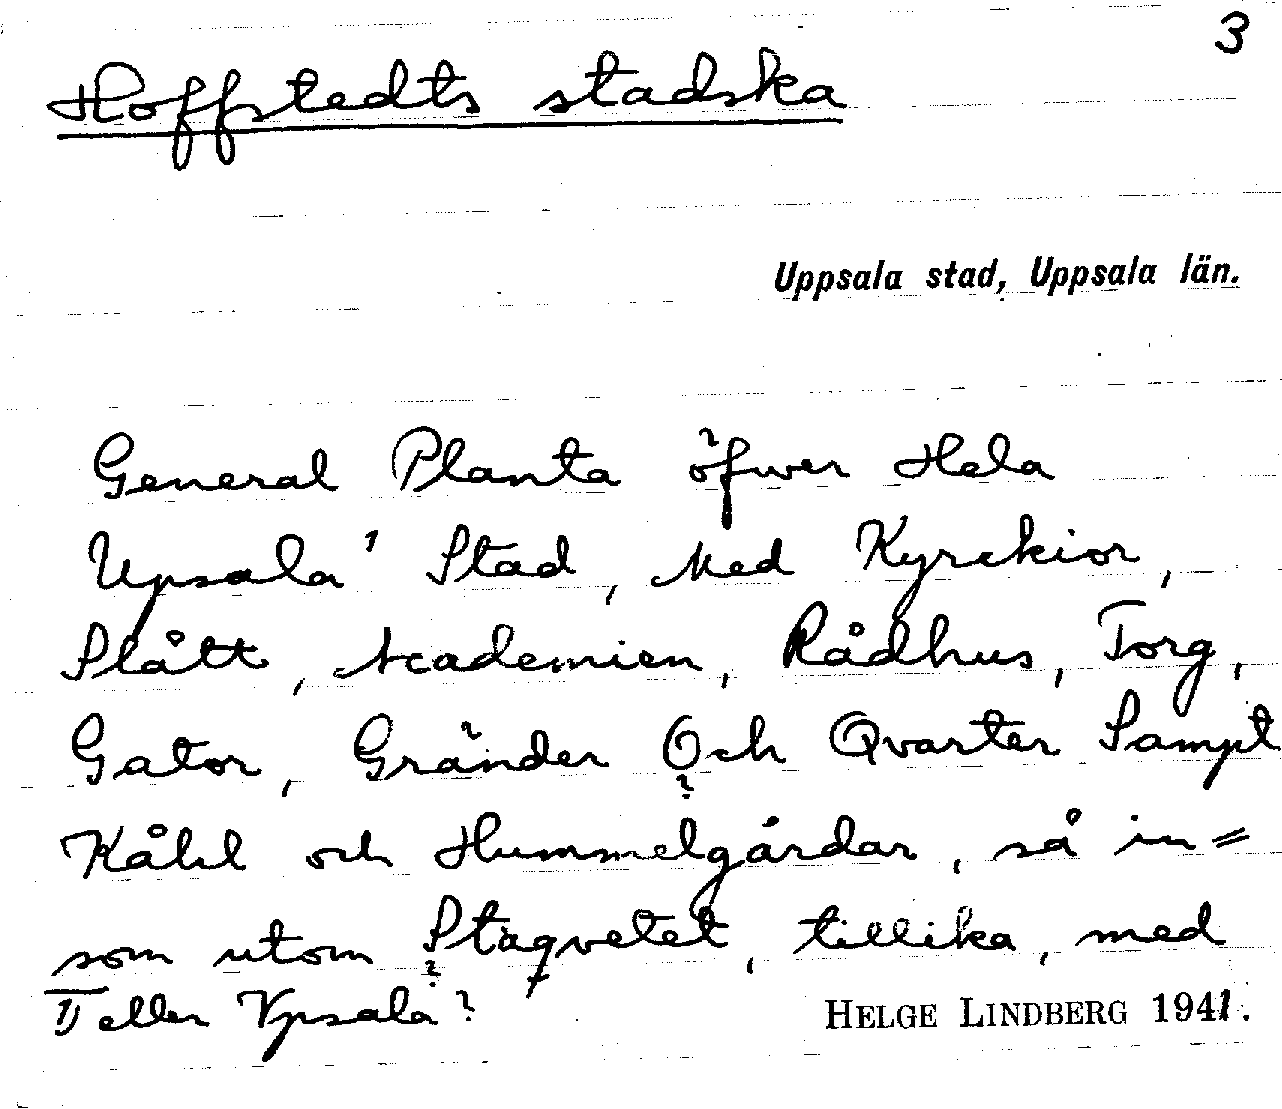 3
Hoffstedts stadska
Uppsala stad, Uppsala län.
General Planta öfwer Hela
Upsala¹ Stad, Med Kyrckior,
Slått, Academien, Rådhus, Torg,
Gator, Gränder Och Qvarter Sampt
Kåhl och Hummelgårdar, så in=
som utom Staqvetet, tillika, med
1) eller Ypsala?
HELGE LINDBERG 1941.